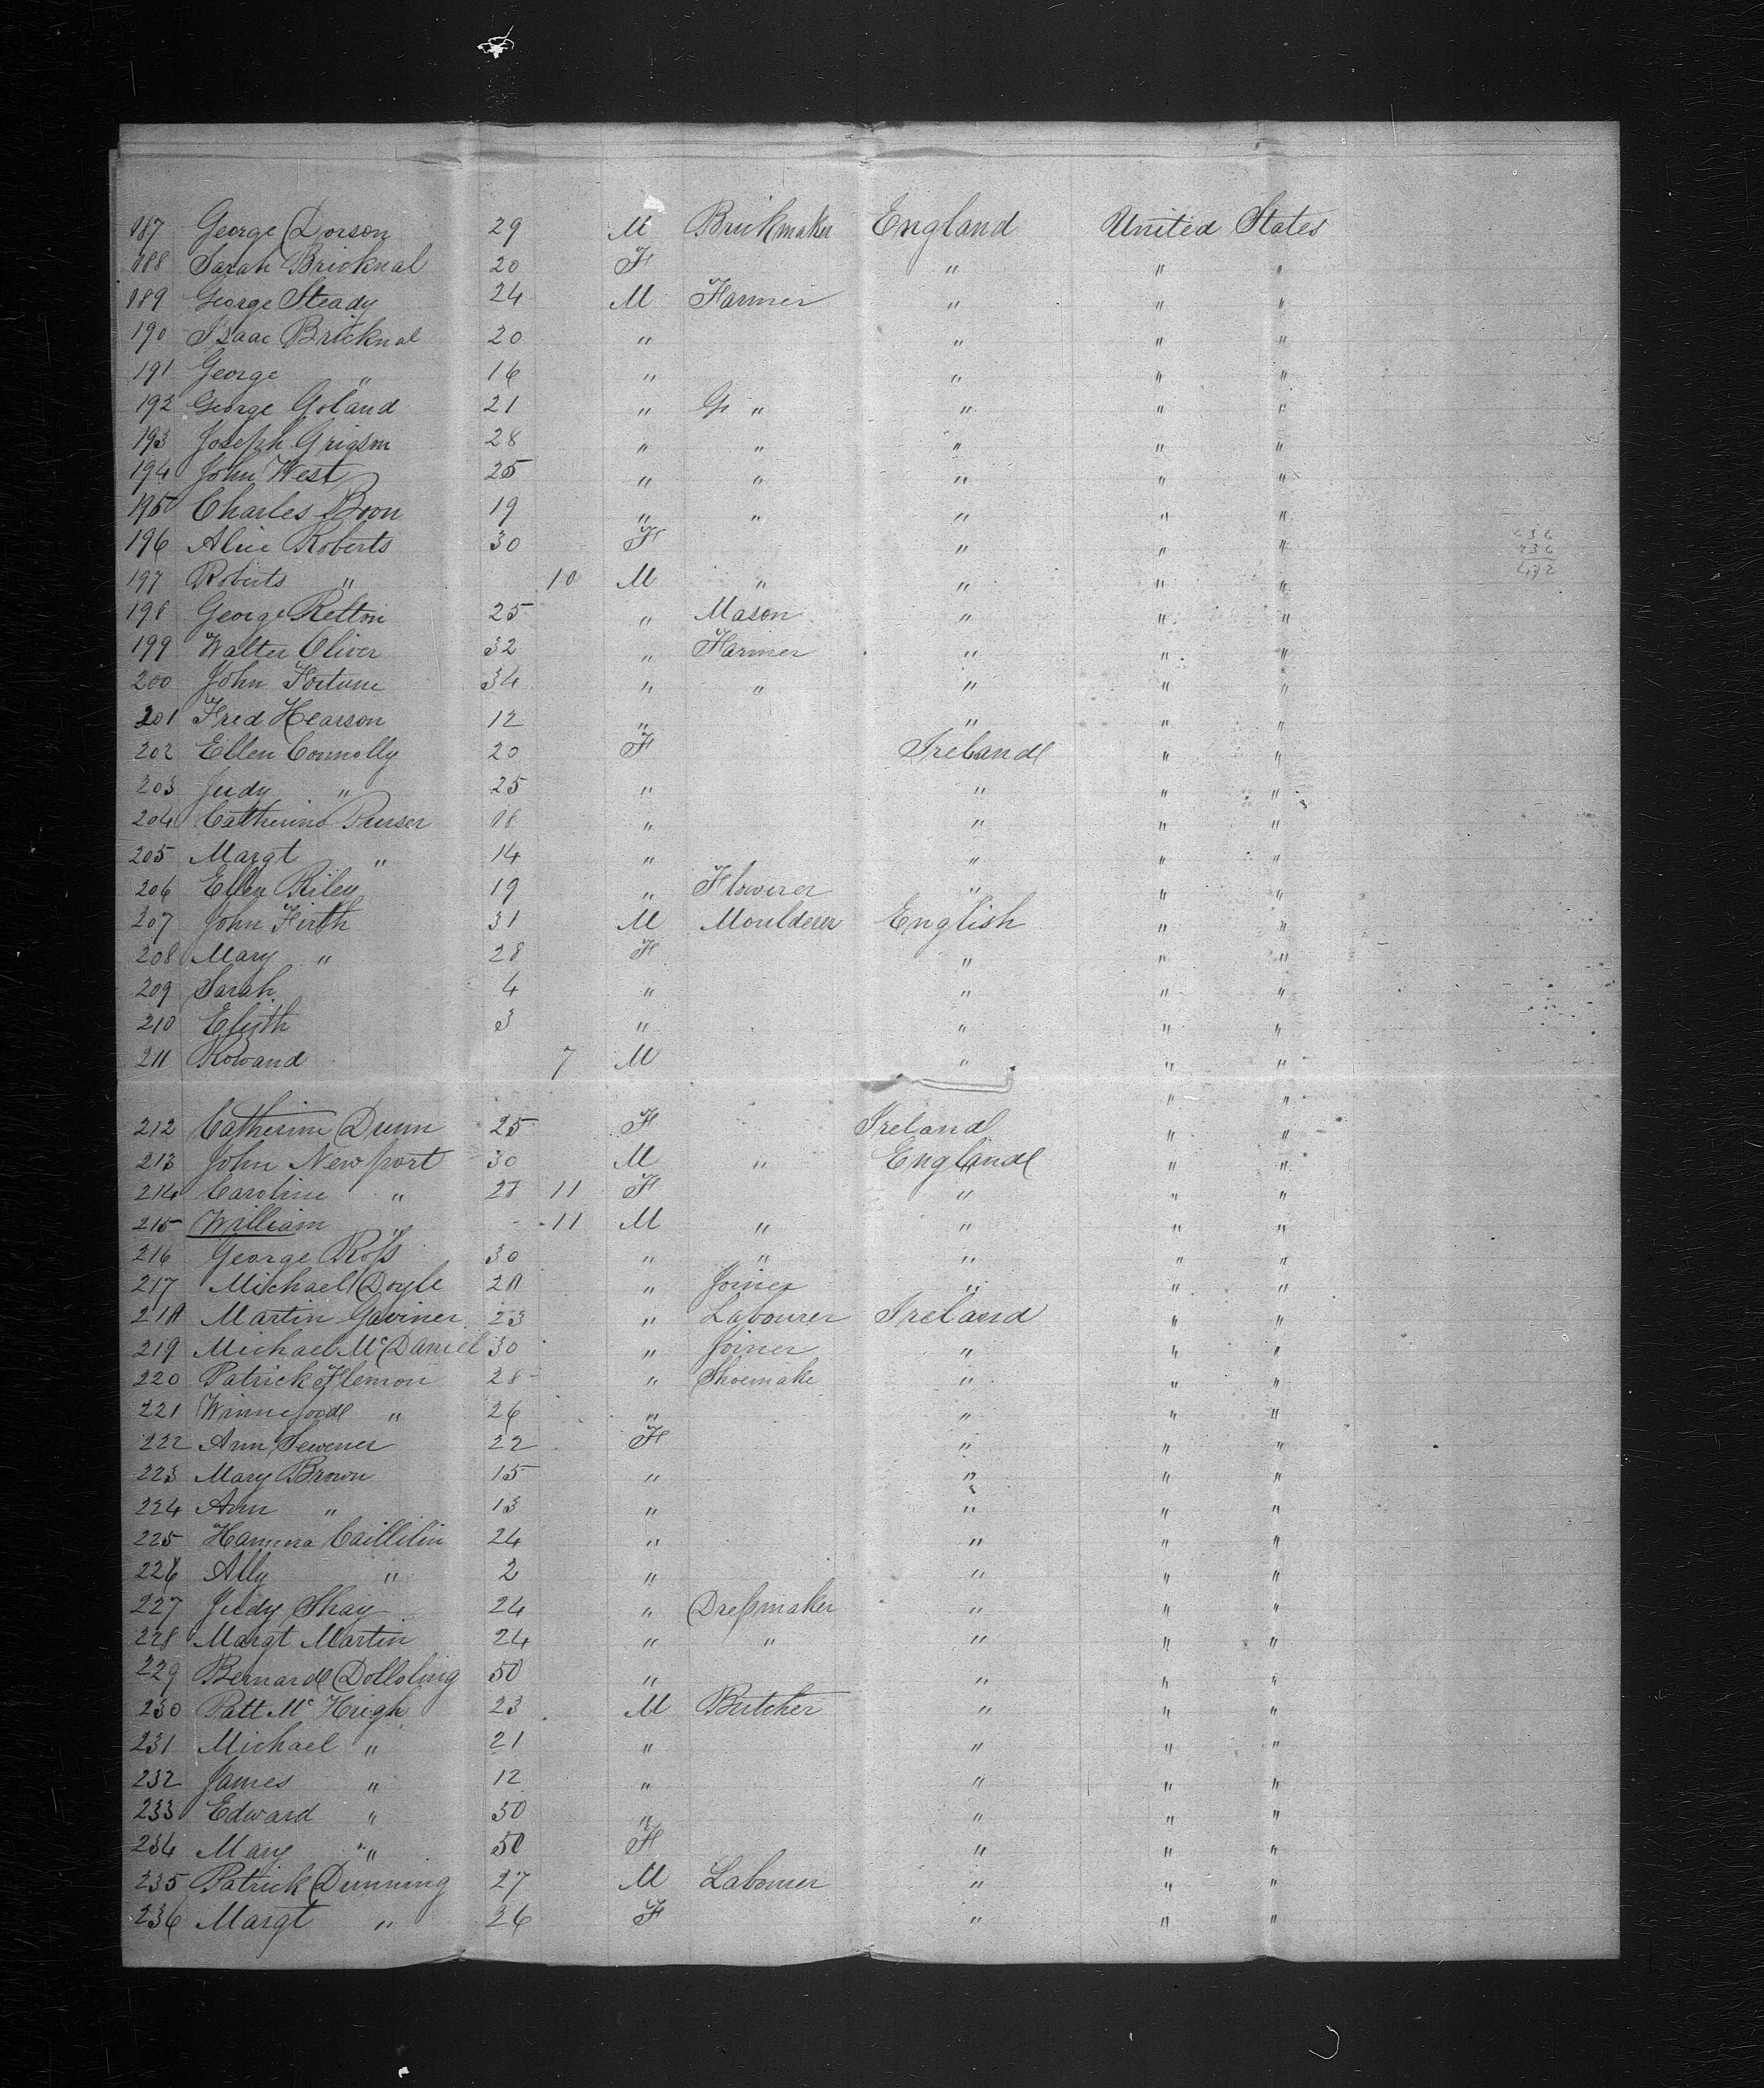 187 George Dorson 29 M Brickmaker England United States
188 Sarah Bricknal 20 F " " "
189 George Steady 24 M Farmer " " "
190 Isaac Bricknal 20 " " " "
191 George " 16 " " " "
192 George Goland 21 " G " " " "
193 Joseph Grigson 28 " " " " "
194 John West 25 " " " " "
195 Charles Boon 19 " " " " "
196 Alice Roberts 30 F " " "
197 Roberts " 10 M " " " "
198 George Relton 25 " Mason " " "
199 Walter Oliver 32 " Farmer " " "
200 John Fortune 34 " " " " "
201 Fred Hearson 12 " " " "
202 Ellen Connolly 20 F Ireland " "
203 Judy " 25 " " " "
204 Catherine Purser 18 " " " "
205 Margt " 14 " " " "
206 Ellen Riley 19 " Flowerer " " "
207 John Firth 31 M Moulderer English " "
208 Mary " 28 F " " "
209 Sarah 4 " " " "
210 Elisth 3 " " " "
211 Rowand 7 M " " "
" "
212 Catherine Dunn 25 F Ireland " "
213 John Newport 30 M " England " "
214 Caroline " 28 11 F " " "
215 William " - - 11 M " " " "
216 George Ross 30 " " " " "
217 Michael Doyle 20 " Joiner " " "
218 Martin Gaviner 23 " Labourer Ireland " "
219 Michael McDaniel 30 " Joiner " " "
220 Patrick Flemon 28 " Shoemake " " "
221 Winneford " 26 " " " "
222 Ann Sewener 22 F " " "
223 Mary Brown 15 " " " "
224 Ann " 13 " " " "
225 Hannora Caillilin 24 " " " "
226 Ally " 2 " " " "
227 Judy Shay 24 " Dressmaker " " "
228 Margt Martin 24 " " " " "
229 Bernard Dolloling 50 " " " "
230 Patt McHugh 23 M Butcher " " "
231 Michael " 21 " " " "
232 James " 12 " " " "
233 Edward " 50 " " " "
234 Mary " 50 F " " "
235 Patrick Dunning 27 M Labourer " " "
236 Margt " 26 F " " "
236
236
472